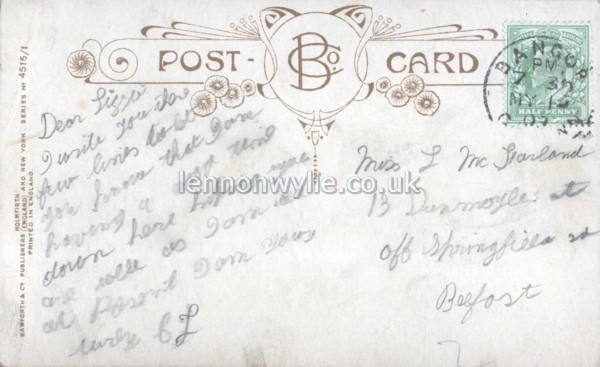 POST- B Co. CARD
BANGOR
7 30 PM
MY 12
HALF PENNY
Dear Lizzie
I write you these
few lines to let
you know that I am
having a
down here hop
are well as I am
at Present I am yours
CL
Miss L Mc Farland
13 Dunmoyle st
off Springfield rd
Belfast
lennonwylie.co.uk
BAMFORTH & Co PUBLISHERS HOLMFIRTH (ENGLAND) AND NEW YORK. SERIES No 4515/1
PRINTED IN ENGLAND.